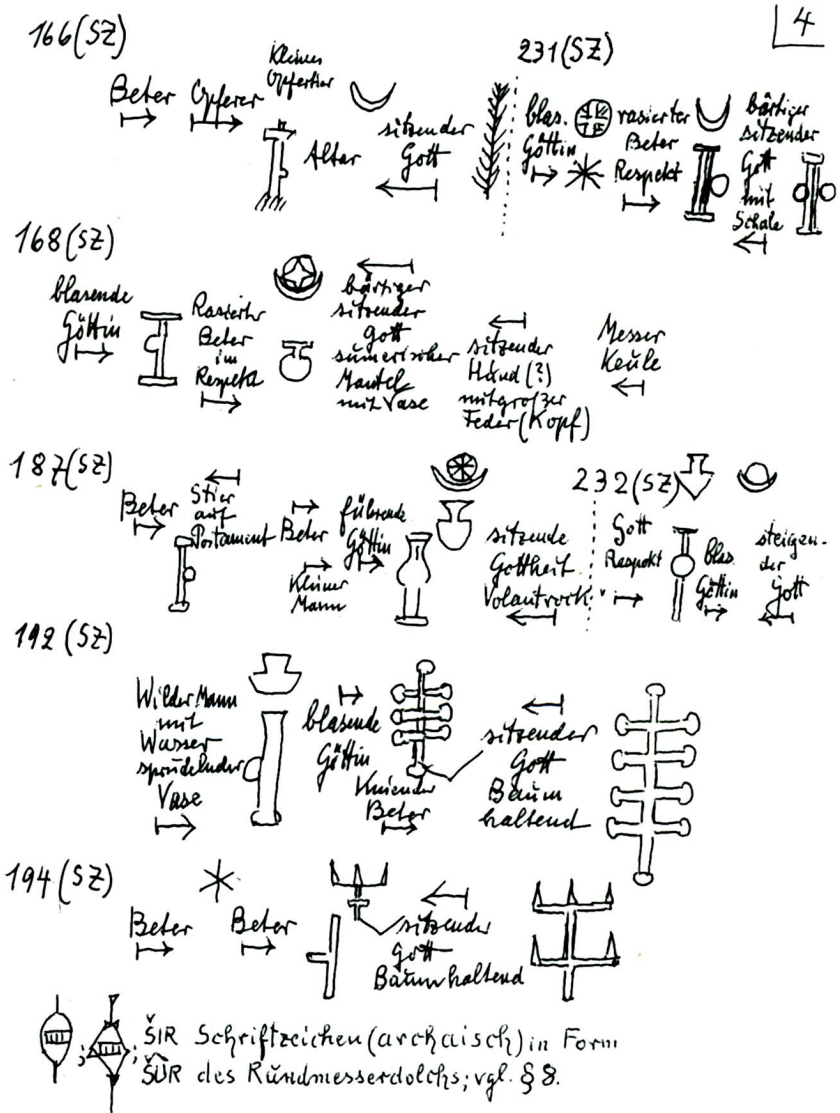 4
166 (SZ)
Beter
Opferer
Kleines
Opfertier
Altar
sitzender
Gott
231 (SZ)
blas.
Göttin
rasierter
Beter
Respekt
bärtiger
sitzender
Gott
mit
Schale
168 (SZ)
blasende
Göttin
Rasierter
Beter
im
Respekt
bärtiger
sitzender
Gott
sumerischer
Mantel
mit Vase
sitzender
Hund (?)
mit großer
Feder (Kopf)
Messer
Keule
187 (SZ)
Beter
Stier
auf
Postament
Beter
Kleiner
Mann
führende
Göttin
sitzende
Gottheit
Volantrock
232 (SZ)
Gott
Respekt
blas.
Göttin
steigen-
der
Gott
192 (SZ)
Wilder Mann
mit
Wasser
sprudelnder
Vase
blasende
Göttin
Kniender
Beter
sitzender
Gott
Baum
haltend
194 (SZ)
Beter
Beter
sitzender
Gott
Baum haltend
; ; ŠIR Schriftzeichen (archaisch) in Form
ŠUR des Rundmesserdolchs; vgl. § 8.